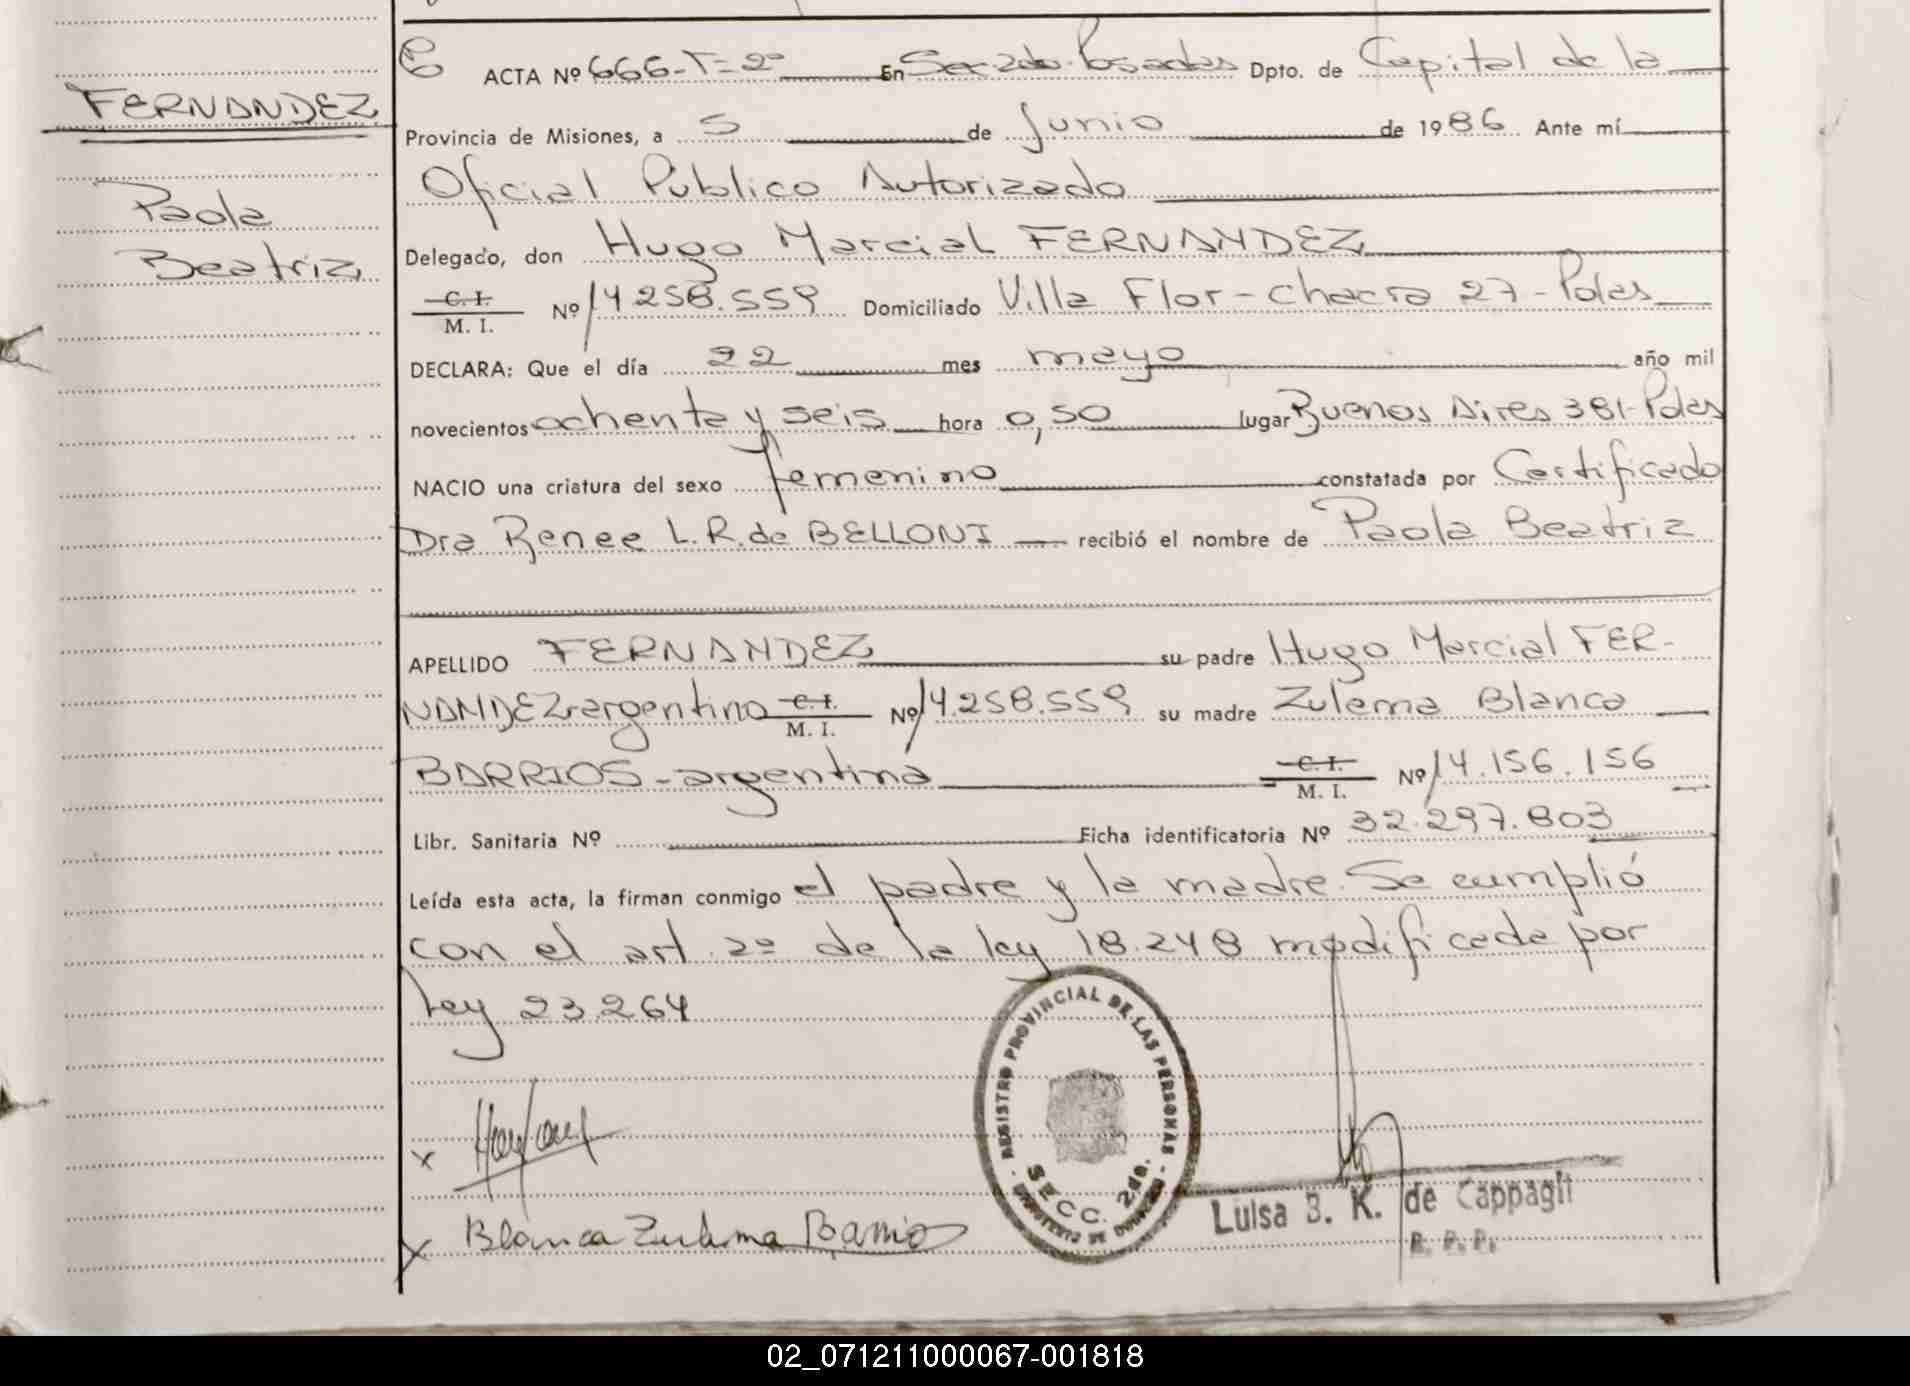 FERNANDEZ
Paola
Beatriz
ACTA Nº 666-T=2º En Sec 2da. Posadas Dpto. de Capital de la
Provincia de Misiones, a 5 de Junio de 1986 Ante mí
Oficial Publico Autorizado
Delegado, don Hugo Marcial FERNANDEZ
C. I.
M. I. Nº 14.258.559 Domiciliado Villa Flor - Chacra 27 - Pdas
DECLARA: Que el día 22 mes mayo año mil
novecientos ochenta y seis hora 0,50 lugar Buenos Aires 381-Pdas
NACIO una criatura del sexo femenino constatada por Certificado
Dra Renee L.R. de BELLONI recibió el nombre de Paola Beatriz
APELLIDO FERNANDEZ su padre Hugo Marcial FER-
NANDEZ-argentino C. I. M. I. Nº 14.258.559 su madre Zulema Blanca
BARRIOS - argentina C. I. M. I. Nº 14.156.156
Libr. Sanitaria Nº Ficha identificatoria Nº 32.297.803
Leída esta acta, la firman conmigo el padre y la madre. Se cumplió
con el art. 2º de la ley 18.248 modificada por
Ley 23.264
REGISTRO PROVINCIAL DE LAS PERSONAS
SECC. 2da.
MINISTERIO DE GOBIERNO
x
x Blanca Zulema Barrios
Luisa B. K. de Cappagli
02_071211000067-001818